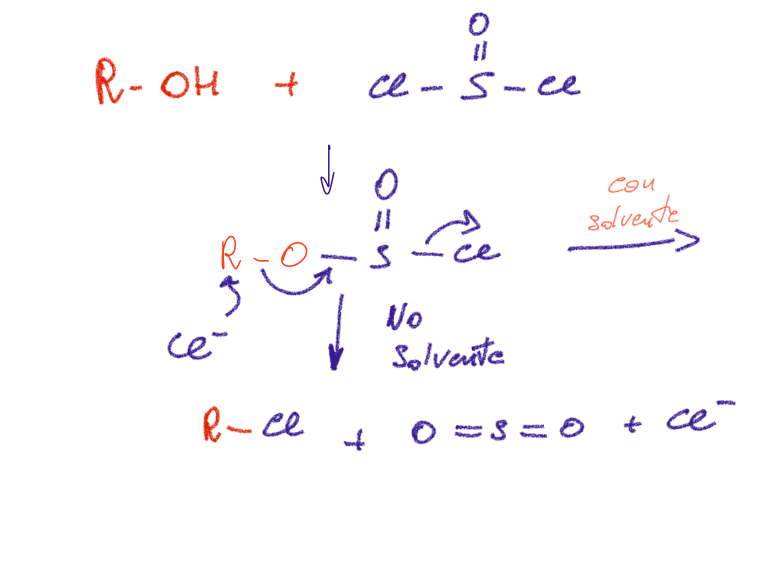 O
R - OH + Cl - S - Cl
O
R - O - S - Cl
con
solvente
Cl⁻
No
solvente
R - Cl + O = S = O + Cl⁻